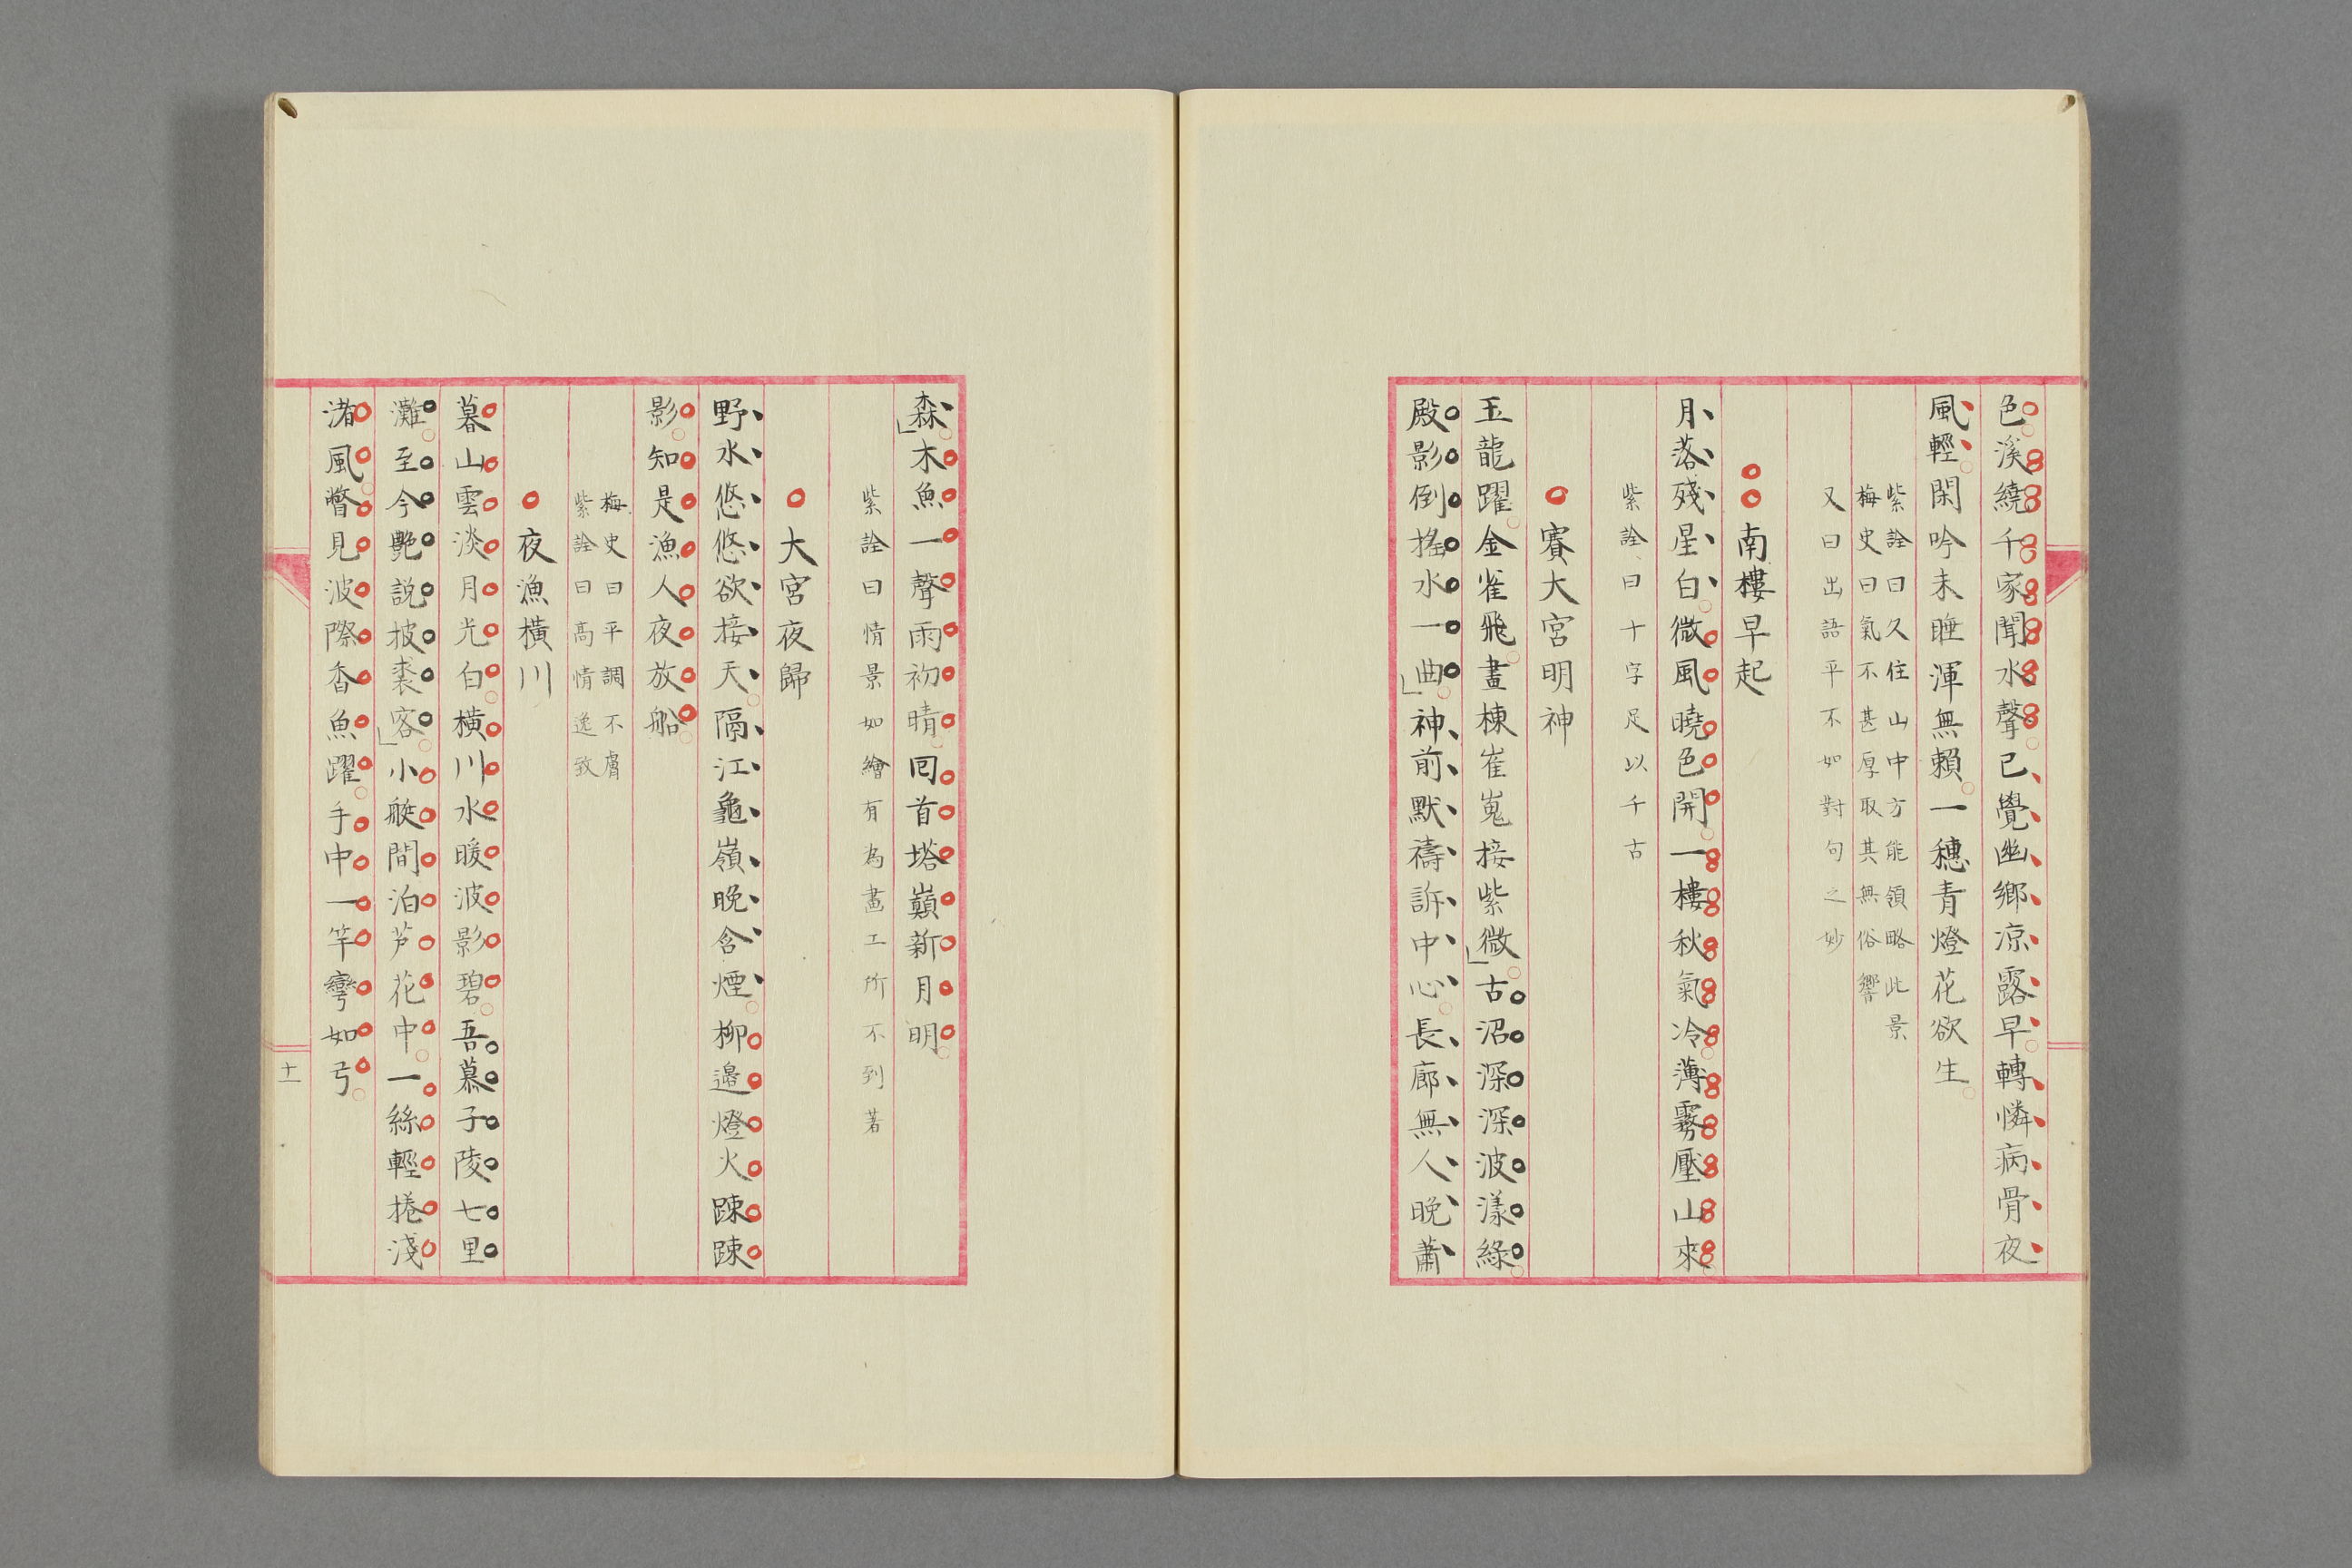 色溪繞千家聞水聲已覺幽鄉涼露早轉憐病骨夜
風輕閑吟未睡渾無賴一穗青燈花欲生
紫詮曰久住山中方能領略此景
梅史曰氣不甚厚取其無俗響
又曰出語平不如對句之妙
南樓早起
月落殘星白微風曉色開一樓秋氣冷薄霧壓山來
紫詮曰十字足以千古
賽大宮明神
玉龍躍金雀飛畫棟崔嵬接紫微古沼深深波漾綠
殿影倒搖水一曲神前默禱訴中心長廊無人晚蕭
森木魚一聲雨初晴回首塔巔新月明
紫詮曰情景如繪有為畫工所不到著
大宮夜歸
野水悠悠欲接天隔江龜嶺晚含煙柳邊燈火踈踈
影知是漁人夜放船
梅史曰平調不膚
紫詮曰高情逸致
夜漁橫川
暮山雲淡月光白橫川水暖波影碧吾慕子陵七里
灘至今艷說披裘客小艇間泊芦花中一絲輕捲淺
渚風瞥見波際香魚躍手中一竿彎如弓
十一